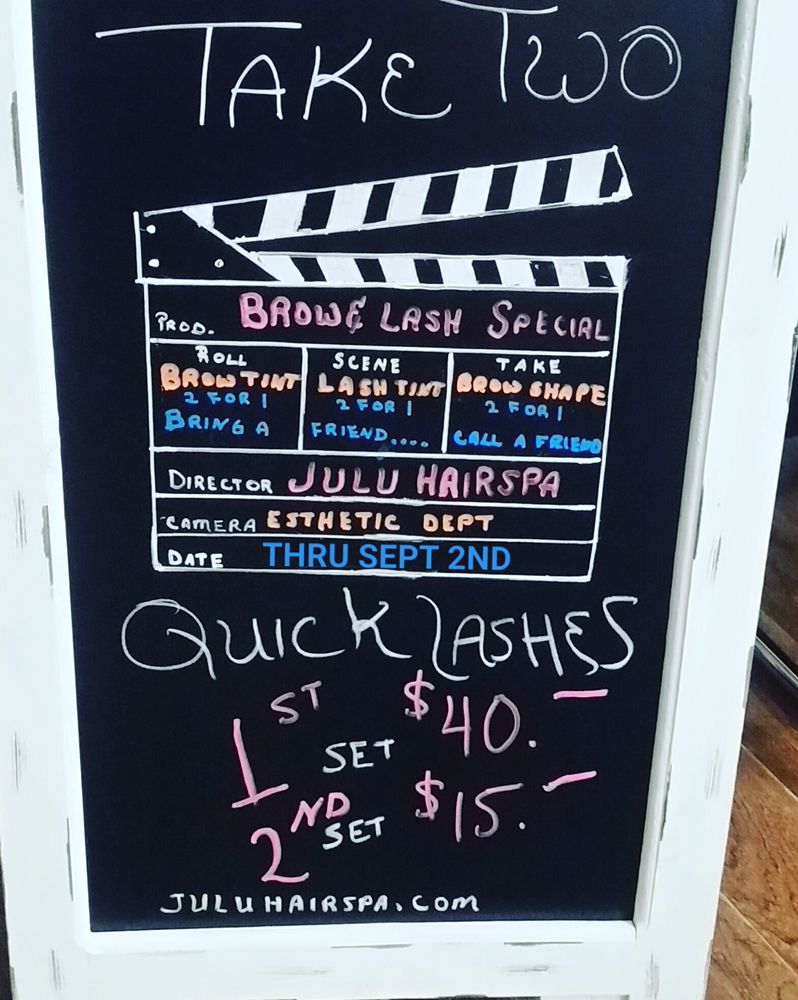 TAKE TWO
PROD. BROW & LASH SPECIAL
ROLL
BROW TINT
2 FOR 1
BRING A
SCENE
LASH TINT
2 FOR 1
FRIEND....
TAKE
BROW SHAPE
2 FOR 1
CALL A FRIEND
DIRECTOR JULU HAIRSPA
CAMERA ESTHETIC DEPT
DATE THRU SEPT 2ND
QUICK LASHES
1ST SET $40.-
2ND SET $15.-
JULUHAIRSPA.COM